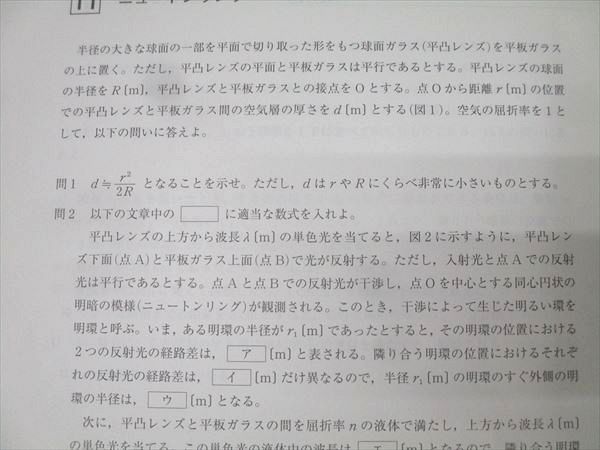 11 ニュートンリング
半径の大きな球面の一部を平面で切り取った形をもつ球面ガラス(平凸レンズ)を平板ガラス
の上に置く。ただし，平凸レンズの平面と平板ガラスは平行であるとする。平凸レンズの球面
の半径を R〔m〕，平凸レンズと平板ガラスとの接点を O とする。点 O から距離 r〔m〕の位置
での平凸レンズと平板ガラス間の空気層の厚さを d〔m〕とする(図1)。空気の屈折率を 1 と
して，以下の問いに答えよ。
問1 d≒r²/2R となることを示せ。ただし，d は r や R にくらべ非常に小さいものとする。
問2 以下の文章中の □ に適当な数式を入れよ。
平凸レンズの上方から波長 λ〔m〕の単色光を当てると，図2に示すように，平凸レン
ズ下面(点 A)と平板ガラス上面(点 B)で光が反射する。ただし，入射光と点 A での反射
光は平行であるとする。点 A と点 B での反射光が干渉し，点 O を中心とする同心円状の
明暗の模様(ニュートンリング)が観測される。このとき，干渉によって生じた明るい環を
明環と呼ぶ。いま，ある明環の半径が r₁〔m〕であったとすると，その明環の位置における
2つの反射光の経路差は，ア〔m〕と表される。隣り合う明環の位置におけるそれぞ
れの反射光の経路差は，イ〔m〕だけ異なるので，半径 r₁〔m〕の明環のすぐ外側の明
環の半径は，ウ〔m〕となる。
次に，平凸レンズと平板ガラスの間を屈折率 n の液体で満たし，上方から波長 λ〔m〕
の単色光を当てる。この単色光の液体中の波長は エ〔m〕となるので，隣り合う明環